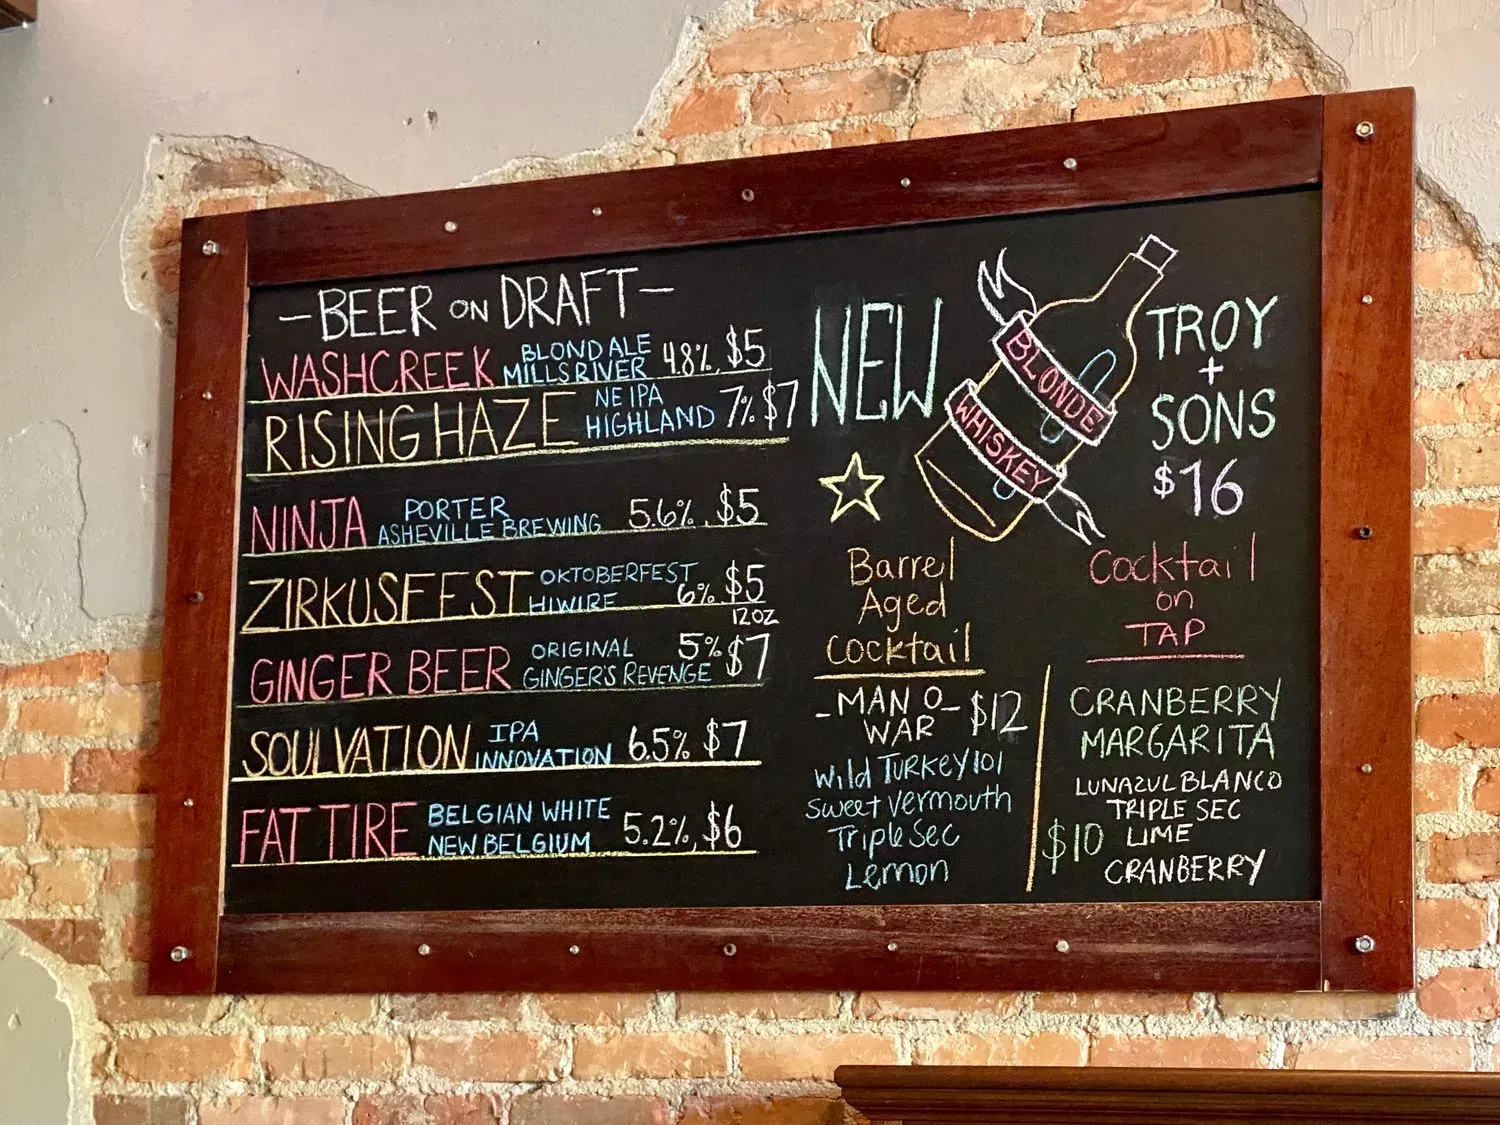 -BEER ON DRAFT-
WASHCREEK BLOND ALE 4.8% $5
MILLS RIVER
RISING HAZE NE IPA 7% $7
HIGHLAND
NINJA PORTER 5.6% $5
ASHEVILLE BREWING
ZIRKUSFEST OKTOBERFEST 6% $5
HIWIRE 12OZ
GINGER BEER ORIGINAL 5% $7
GINGER'S REVENGE
SOULVATION IPA 6.5% $7
INNOVATION
FAT TIRE BELGIAN WHITE 5.2% $6
NEW BELGIUM
NEW
BLONDE
WHISKEY
TROY
+
SONS
$16
Barrel
Aged
Cocktail
-MAN O- $12
WAR
Wild TURKEY 101
Sweet Vermouth
Triple Sec
Lemon
Cocktail
on
TAP
CRANBERRY
MARGARITA
LUNAZUL BLANCO
TRIPLE SEC
$10 LIME
CRANBERRY